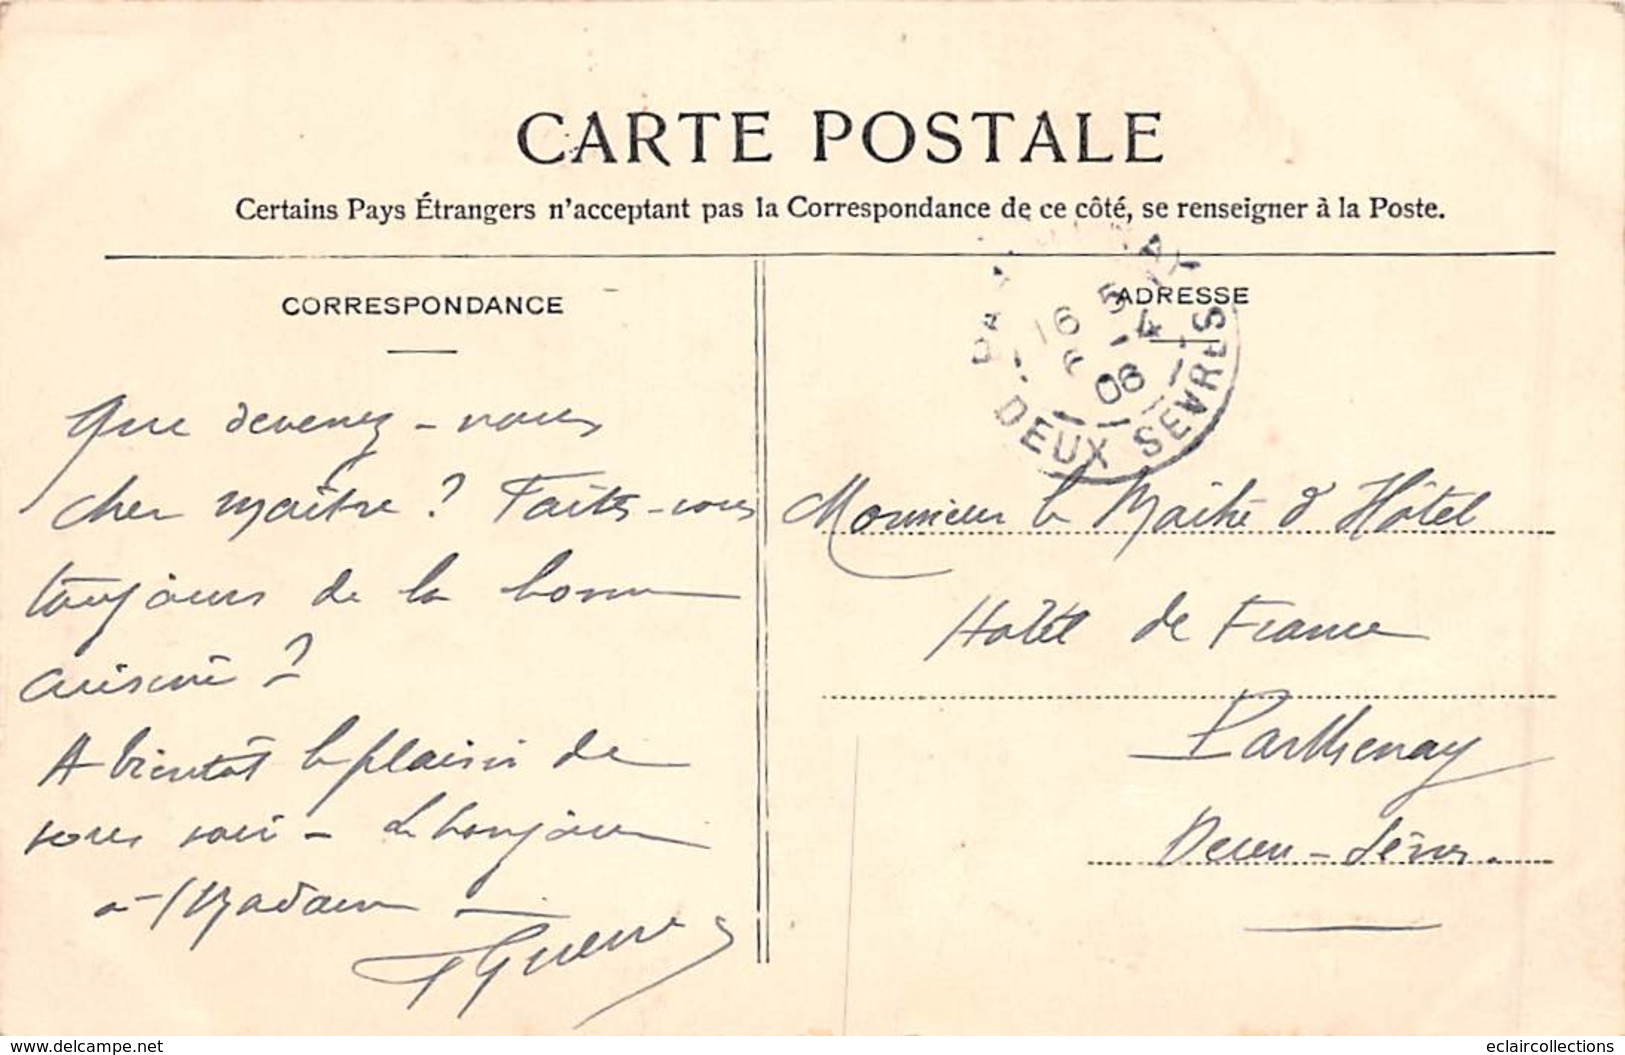 CARTE POSTALE
Certains Pays Étrangers n'acceptant pas la Correspondance de ce côté, se renseigner à la Poste.
CORRESPONDANCE
ADRESSE
16 5 - 4
06
DEUX SEVRES
Que devenez-vous
cher maître ? Faites-vous
toujours de la bonne
cuisine ?
A bientôt le plaisir de
vous voir - Le bonjour
à Madame -
Monsieur le Maître d'Hôtel
Hôtel de France
Parthenay
Deux-Sèvres.
www.delcampe.net
eclaircollections